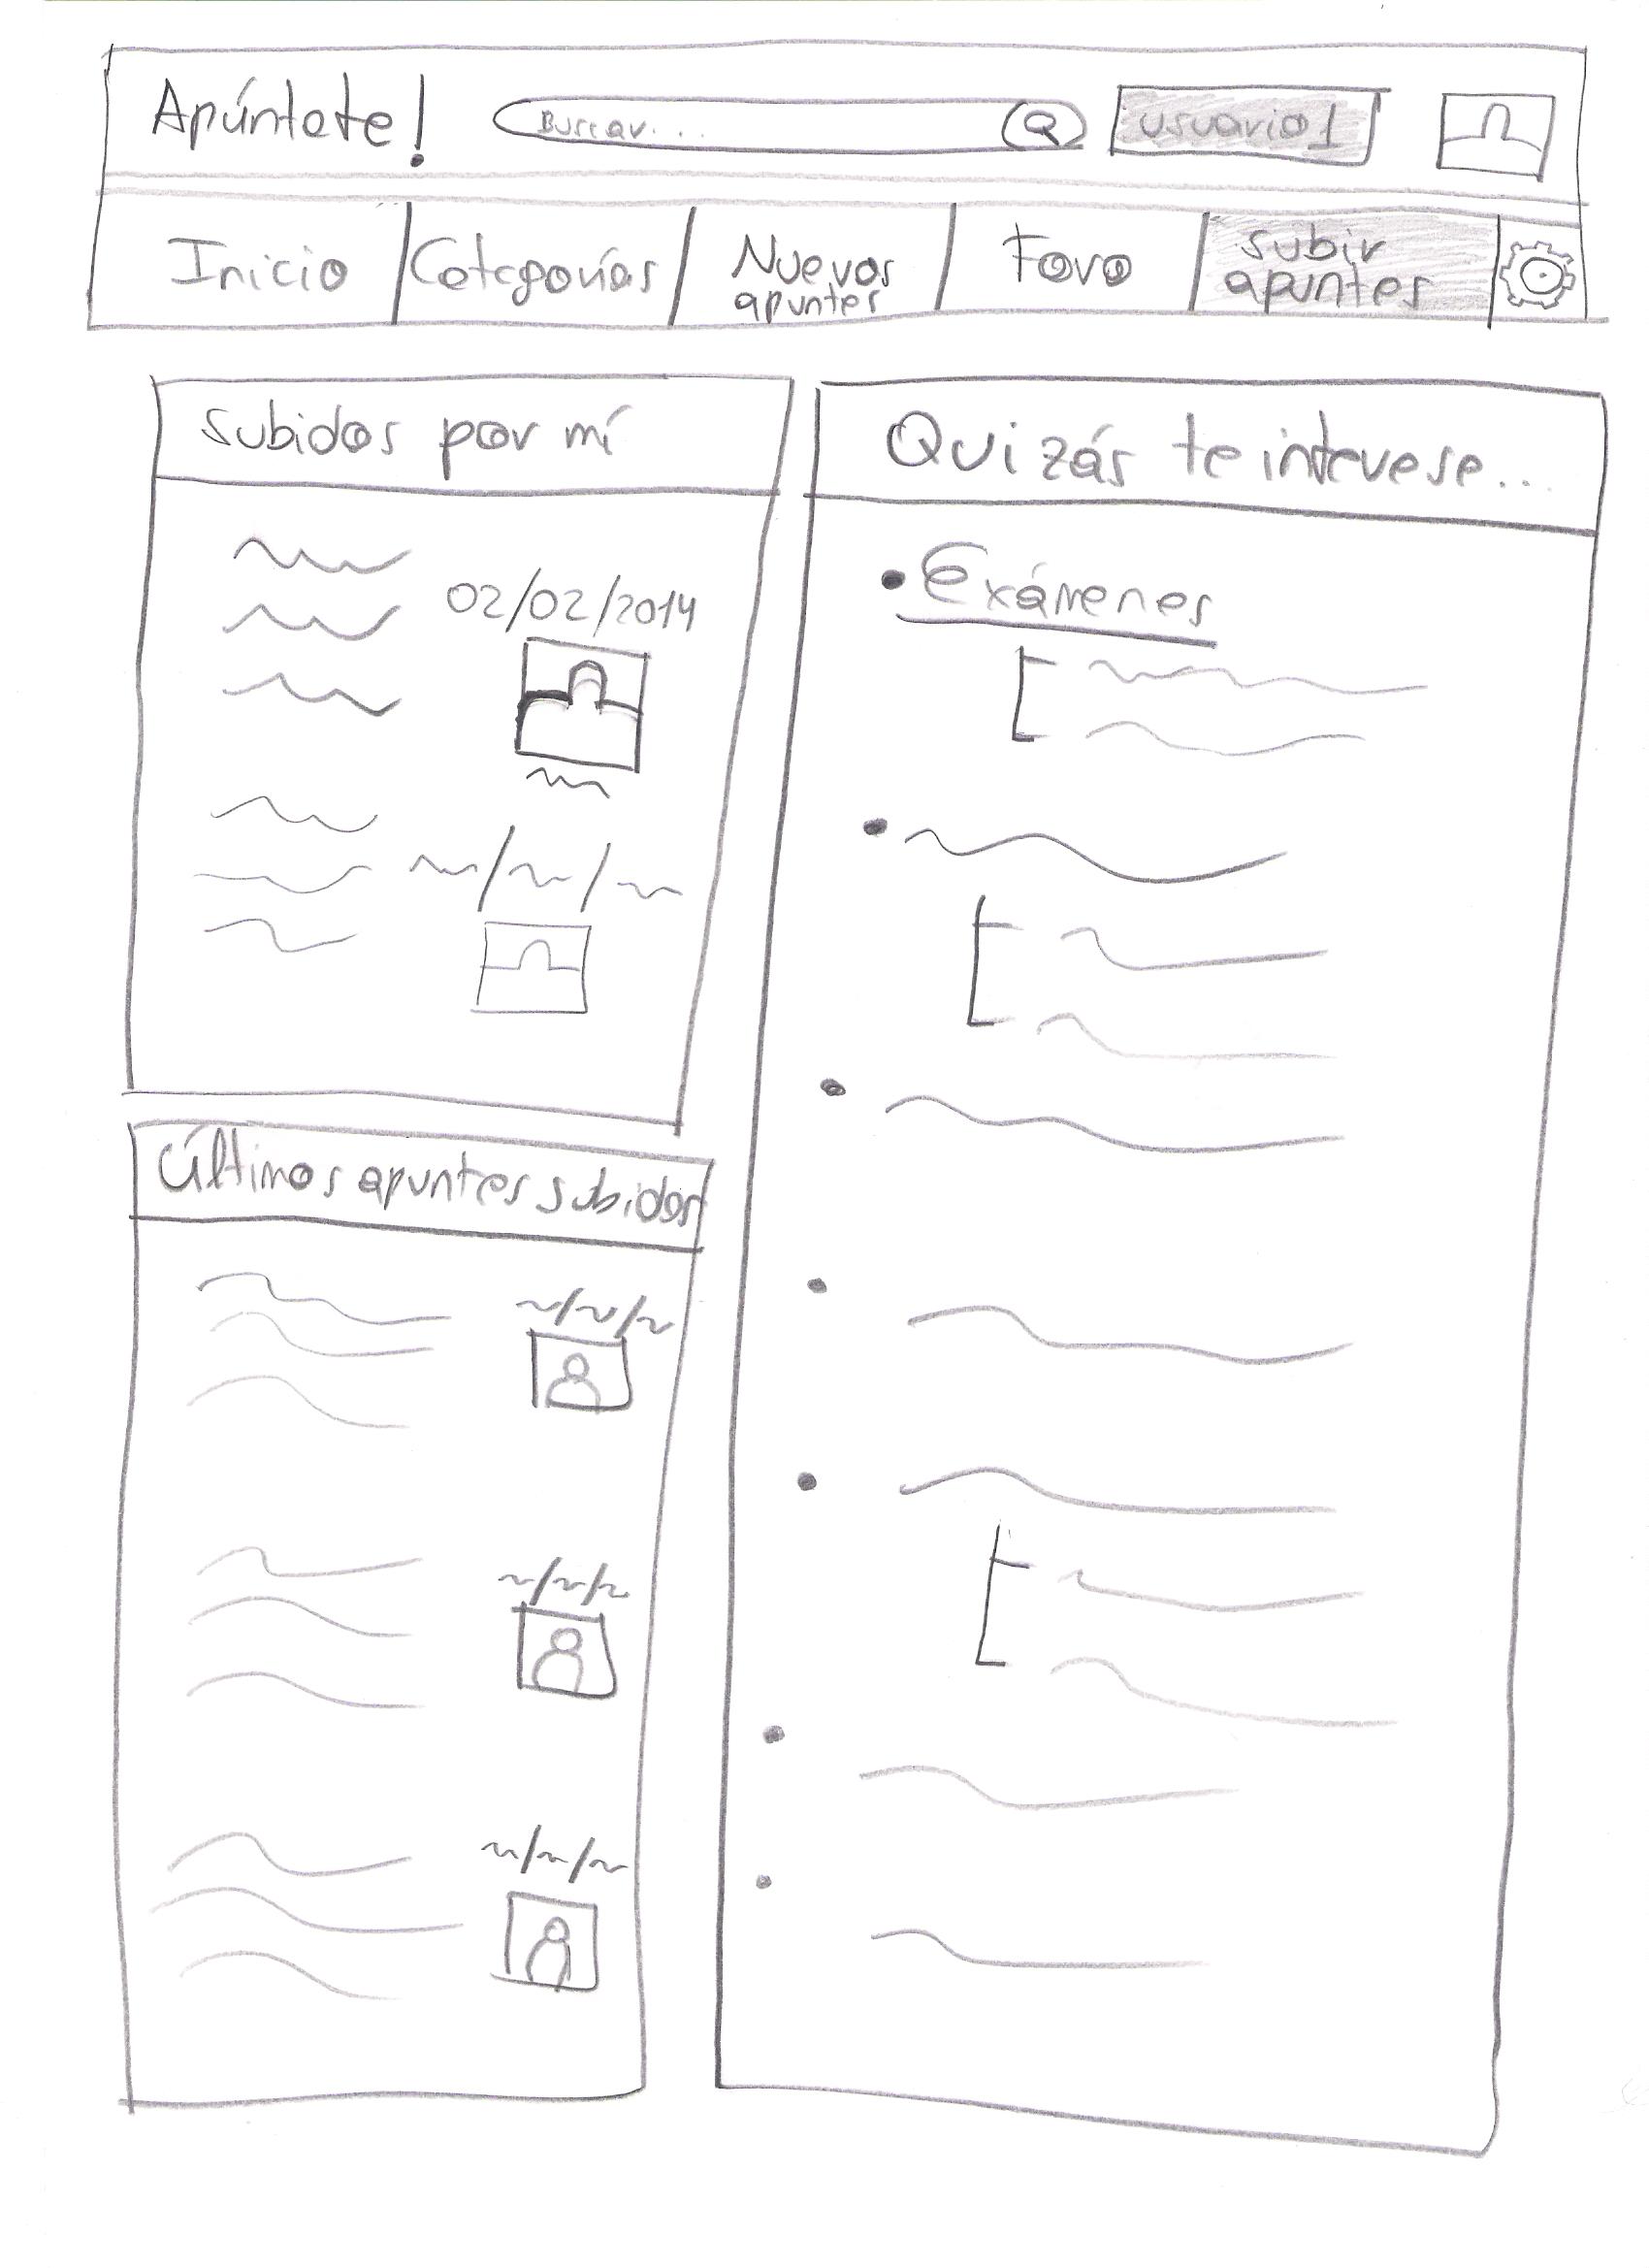 Apúntate!
Buscar...
usuario1
Inicio
Categorías
Nuevos
apuntes
Foro
subir
apuntes
Subidos por mí
02/02/2014
Últimos apuntes subidos
Quizás te interese...
• Exámenes